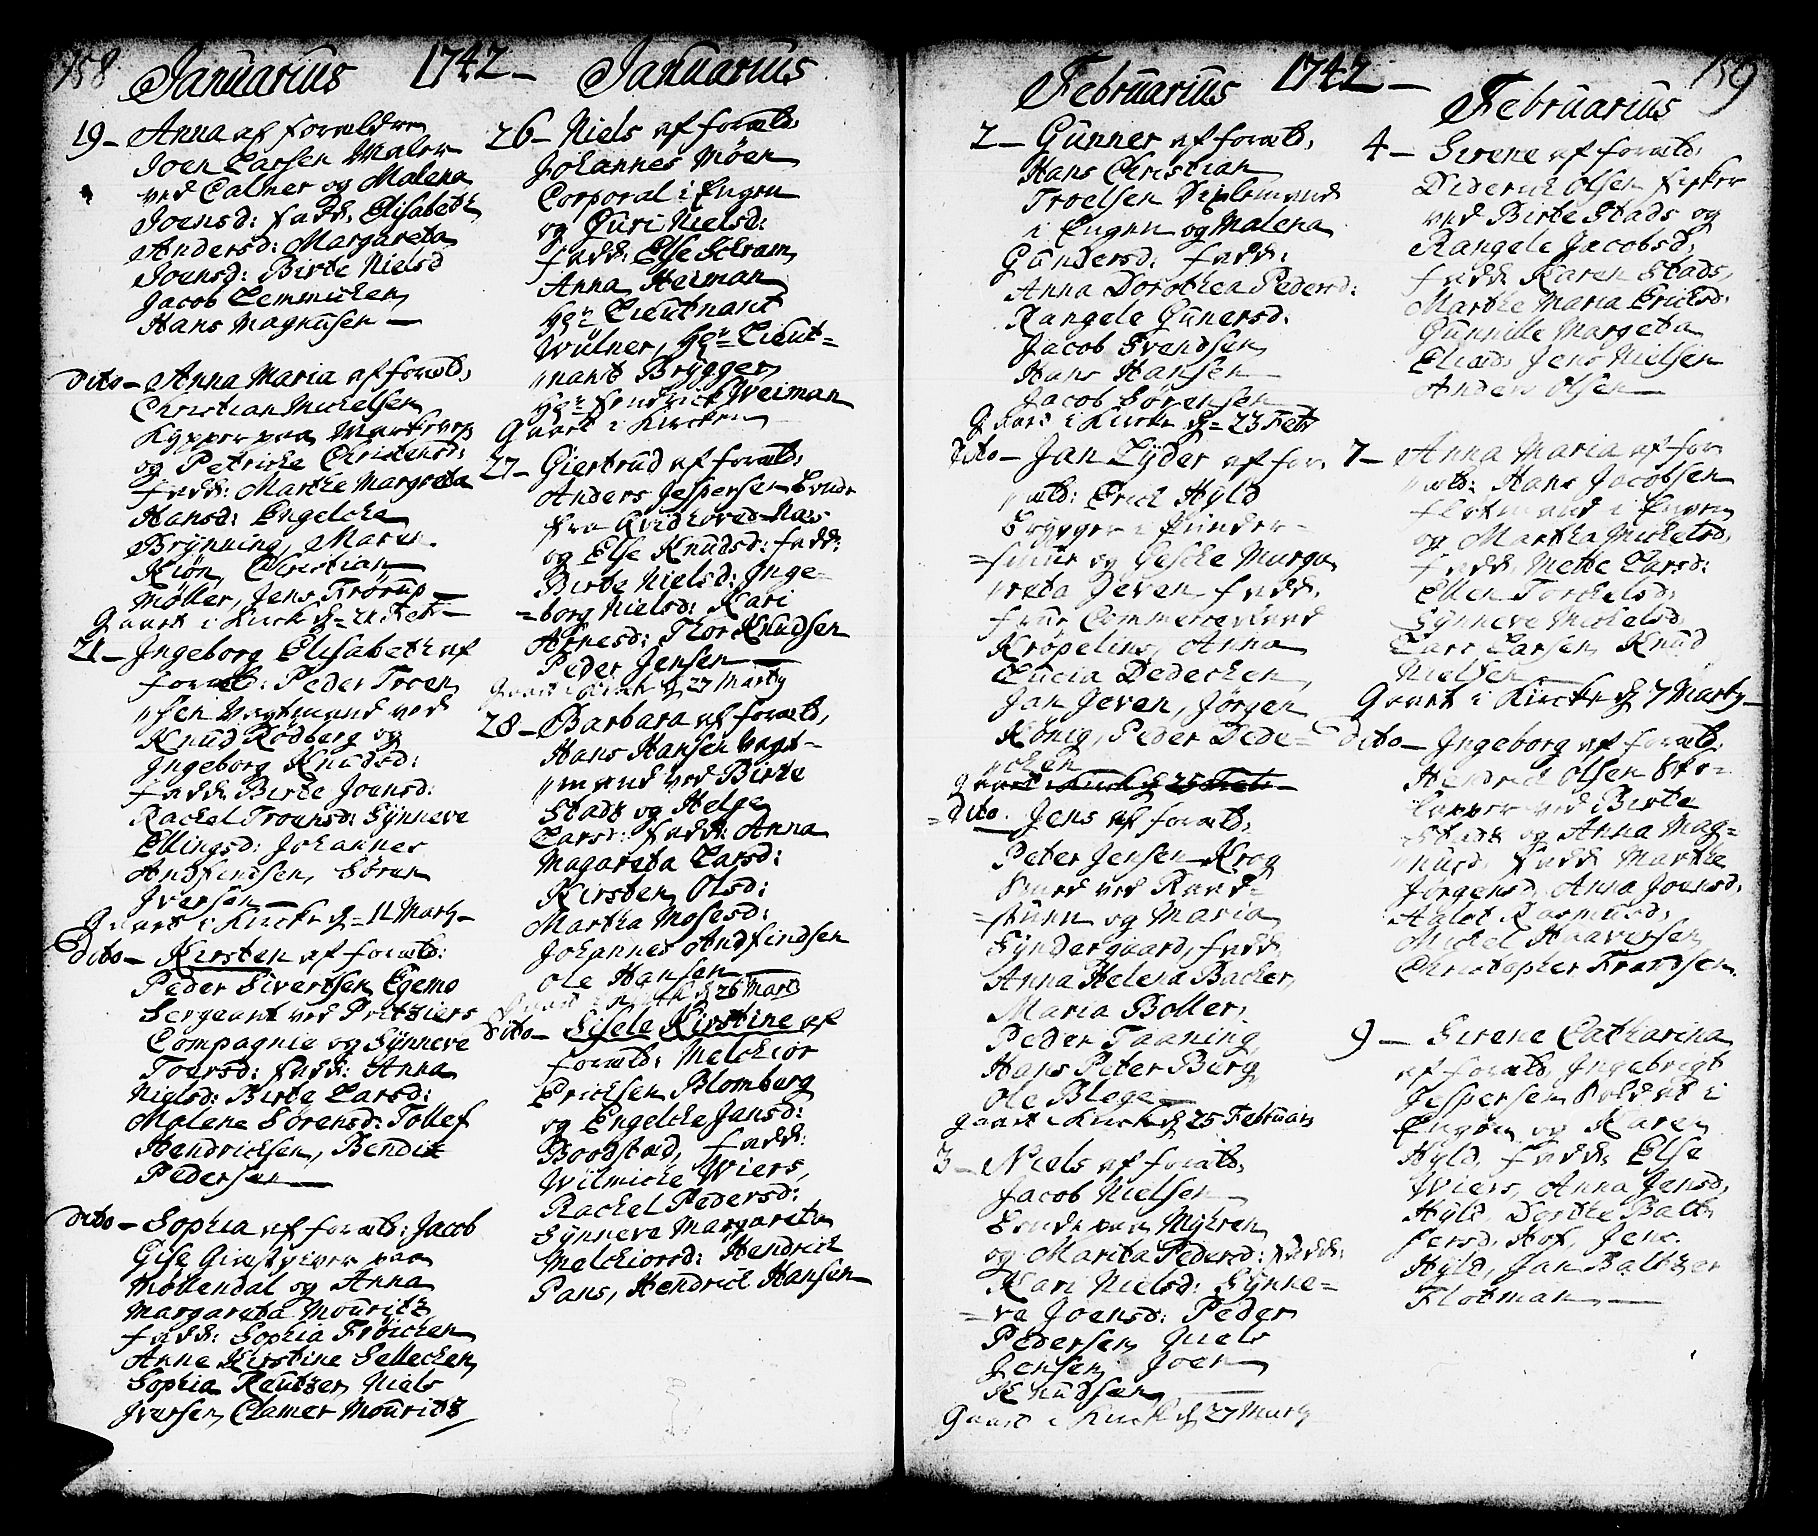 158. Januarius 1742 – Januarius
19 – Anna af forældre
Joen Larsen Maler
ved Calmer og Malena
Joensd: fadd: Elisabeth
Andersd: Margareta
Joensd: Birte Nielsd
Jacob Lemmichen
Hans Magnusen –
dito – Anna Maria af foræld,
Christian Michelsen
Kypper paa
og Petriche Christensd:
fadd: Marthe Margreta
Hansd: Engelche
Brynning, Maren
Kiøn, Christian
Møller, Jens Trørup –
Gaaet i Kirck d = 21 Feb –
21 – Ingeborg Elisabeth af
foræld: Peder Troen
"sen Vagtmand ved
Knud Rødberg og
Ingeborg Knudsd:
fadd: Birte Joensd:
Rachel Troensd: Synneve
Ellingsd: Johannes
Andfindsen, Søren
Iversen –
Gaaet i Kircke d = 11 Marty –
dito – Kirsten af foræld:
Peder Sivertsen Egemo
Sergeant ved Pritziers
Compagnie og Synneve
Toersd: fadd: Anna
Nielsd: Birte Larsd:
Malene Sørensd: Tollef
Hendrichsen, Bendix
Pedersen –
dito – Sophia af foræld: Jacob
Gise Giestgiver paa
Møllendal og Anna
Margareta Mouritz
fadd: Sophia Frøichen
Anne Kirstine Sellechen
Sophia Reutzer, Niels
Iversen, Clamer Mouritz
26 – Niels af foræld,
Johannes Møen
Corporal i Engen
og Guri Nielsd:
fadd: Else Schram,
Anna Heiman
Hr Lieutnant
Wulner, Hr = Lieut =
"nant Brygger,
Hr fendrick Weiman
Gaaet i Kircken
27 – Giertrud af foræld,
Anders Jespersen Bonde
fra Qvidhoved-Næs
og Else Knudsd: fadd:
Birte Nielsd: Inge
= borg Nielsd: Kari
Arnesd: Thor Knudsen
Peder Jensen –
Gaaet i Kirck d 27 Marty
28 – Barbara af foræld,
Hans Hansen Vagt –
"mand ved Birte
Stads og Helge
Larsd: fadd: Anna
Magareta Larsd:
Kirsten Olsd:
Martha Mosesd:
Johannes Andfindsen
Ole Hansen –
Gaaet i Kirck d 26 Marti
dito – Sisele Kirstine af
foræld: Melchior
Erichsen Blomberg
og Engelche Jansd:
Boodstad, fadd:
Wilmiche Wiers,
Rachel Pedersd:
Synneve Margareta
Melchiorsd: Hendrich
Pans, Hendrich Hansen
Februarius 1742 – Februarius 159
2 – Gunner af foræld,
Hans Christian
Troelsen
i Engen og Malena
Gundersd: fadd:
Anna Dorothea Pedersd:
Rangele Gunersd:
Jacob Svendsen
Hans Hansen
Jacob Sørensen
Gaaet i Kircke d = 23 Feb
dito – Jan Lyder af for
"æld: Erich Hyld
Brygger i
og Gesche Marga
"reta Jeven fadd.
frue Commerceraad
Krøpelins, Anna
Lucia Dedechen,
Jan Jeven, Jørgen
König, Peder Dede =
"chen
Gaaet i Kirck d 25 Feb –
= dito. Jens af foræld,
Peter Jensen Krog
Smed ved Raad =
= stuen og Maria
Syndergaard, fadd.
Anna Helena Bacher,
Maria Boller,
Peder Taaning
Hans Peter Berg
Ole Blege –
Gaaet i Kirck d 25 Februari
3 – Niels af foræld,
Jacob Nielsen
Bonde paa Myhren
og Marita Pedersd: fadd:
Kari Nielsd: Synne =
= ve Joensd: Peder
Pedersen, Niels
Jensen, Joen
Knudsen
Gaaet i Kirck d 27 Marty
4 – Sirene af foræld:
Diderich Olsen fisker
ved Birte Stads og
Rangele Jacobsd,
fadd: Karen Stads,
Marthe Maria Erichsd:
Gunnille Margeta
Eliæd, Jens Nielsen
Anders Olsen –
7 – Anna Maria af for
"æld: Hans Jacobsen
i Engen
og Martha Michelsd,
fadd: Mette Larsd:
Ellen Torchelsd:
Synneve Michelsd,
Lars Larsen, Knud
Nielsen
Gaaet i Kircke d 7 Marty –
dito – Ingeborg af foræld:
Hendrich Olsen
ved Birte
Stads og Anna Mag =
"nusd, fadd. Marthe
Jørgensd, Anna Joensd,
Rasmusd,
Michel Haaversen
Christopher Frandsen.
9 – Sirene Catharina
af foræld, Ingebrigt
Jespersen Soldat i
Engen og Karen
Hyld, fadd, Else
Wiers, Anna Jensd,
Hyld, Dorthe Balt
sersd, Hof, Jens
Hyld, Jan Baltzer
Flotman –